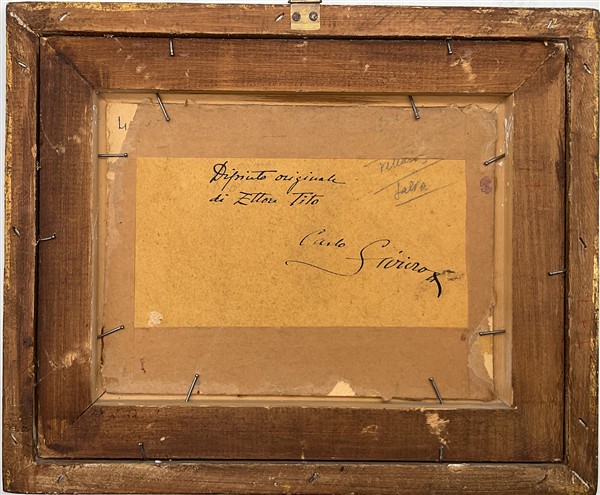 12
Dipinto originale
di Ettore Tito
Carlo Siviero
Salva